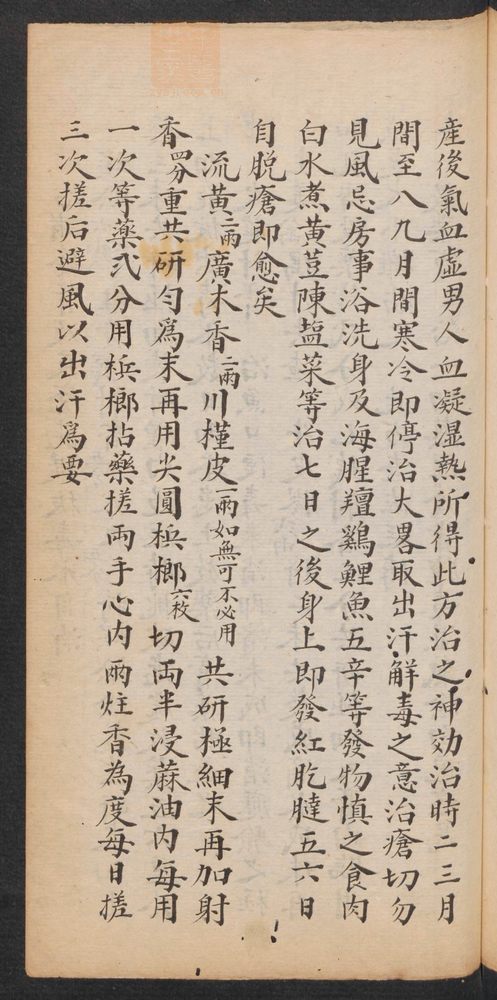 産後氣血虛男人血凝湿熱所得此方治之神効治時二三月
間至八九月間寒冷即停治大畧取出汗解毒之意治瘡切勿
見風忌房事浴洗身及海腥羶鷄鯉魚五辛等發物慎之食肉
白水煮黄荳陳塩菜等治七日之後身上即發紅肐膖五六日
自脱瘡即愈矣
流黄二兩廣木香二兩川槿皮一兩如無可不必用共研極細末再加射
香四分重共研匀爲末再用尖圓梹榔六枚切両半浸蔴油内每用
一次等藥弐分用梹榔拈藥搓両手心内兩炷香為度每日搓
三次搓后避風以出汗爲要